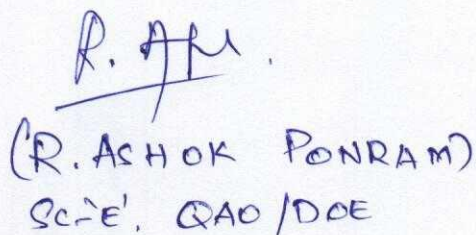 (R. ASHOK PONRAM)
Sc-'E', QAO/DOE